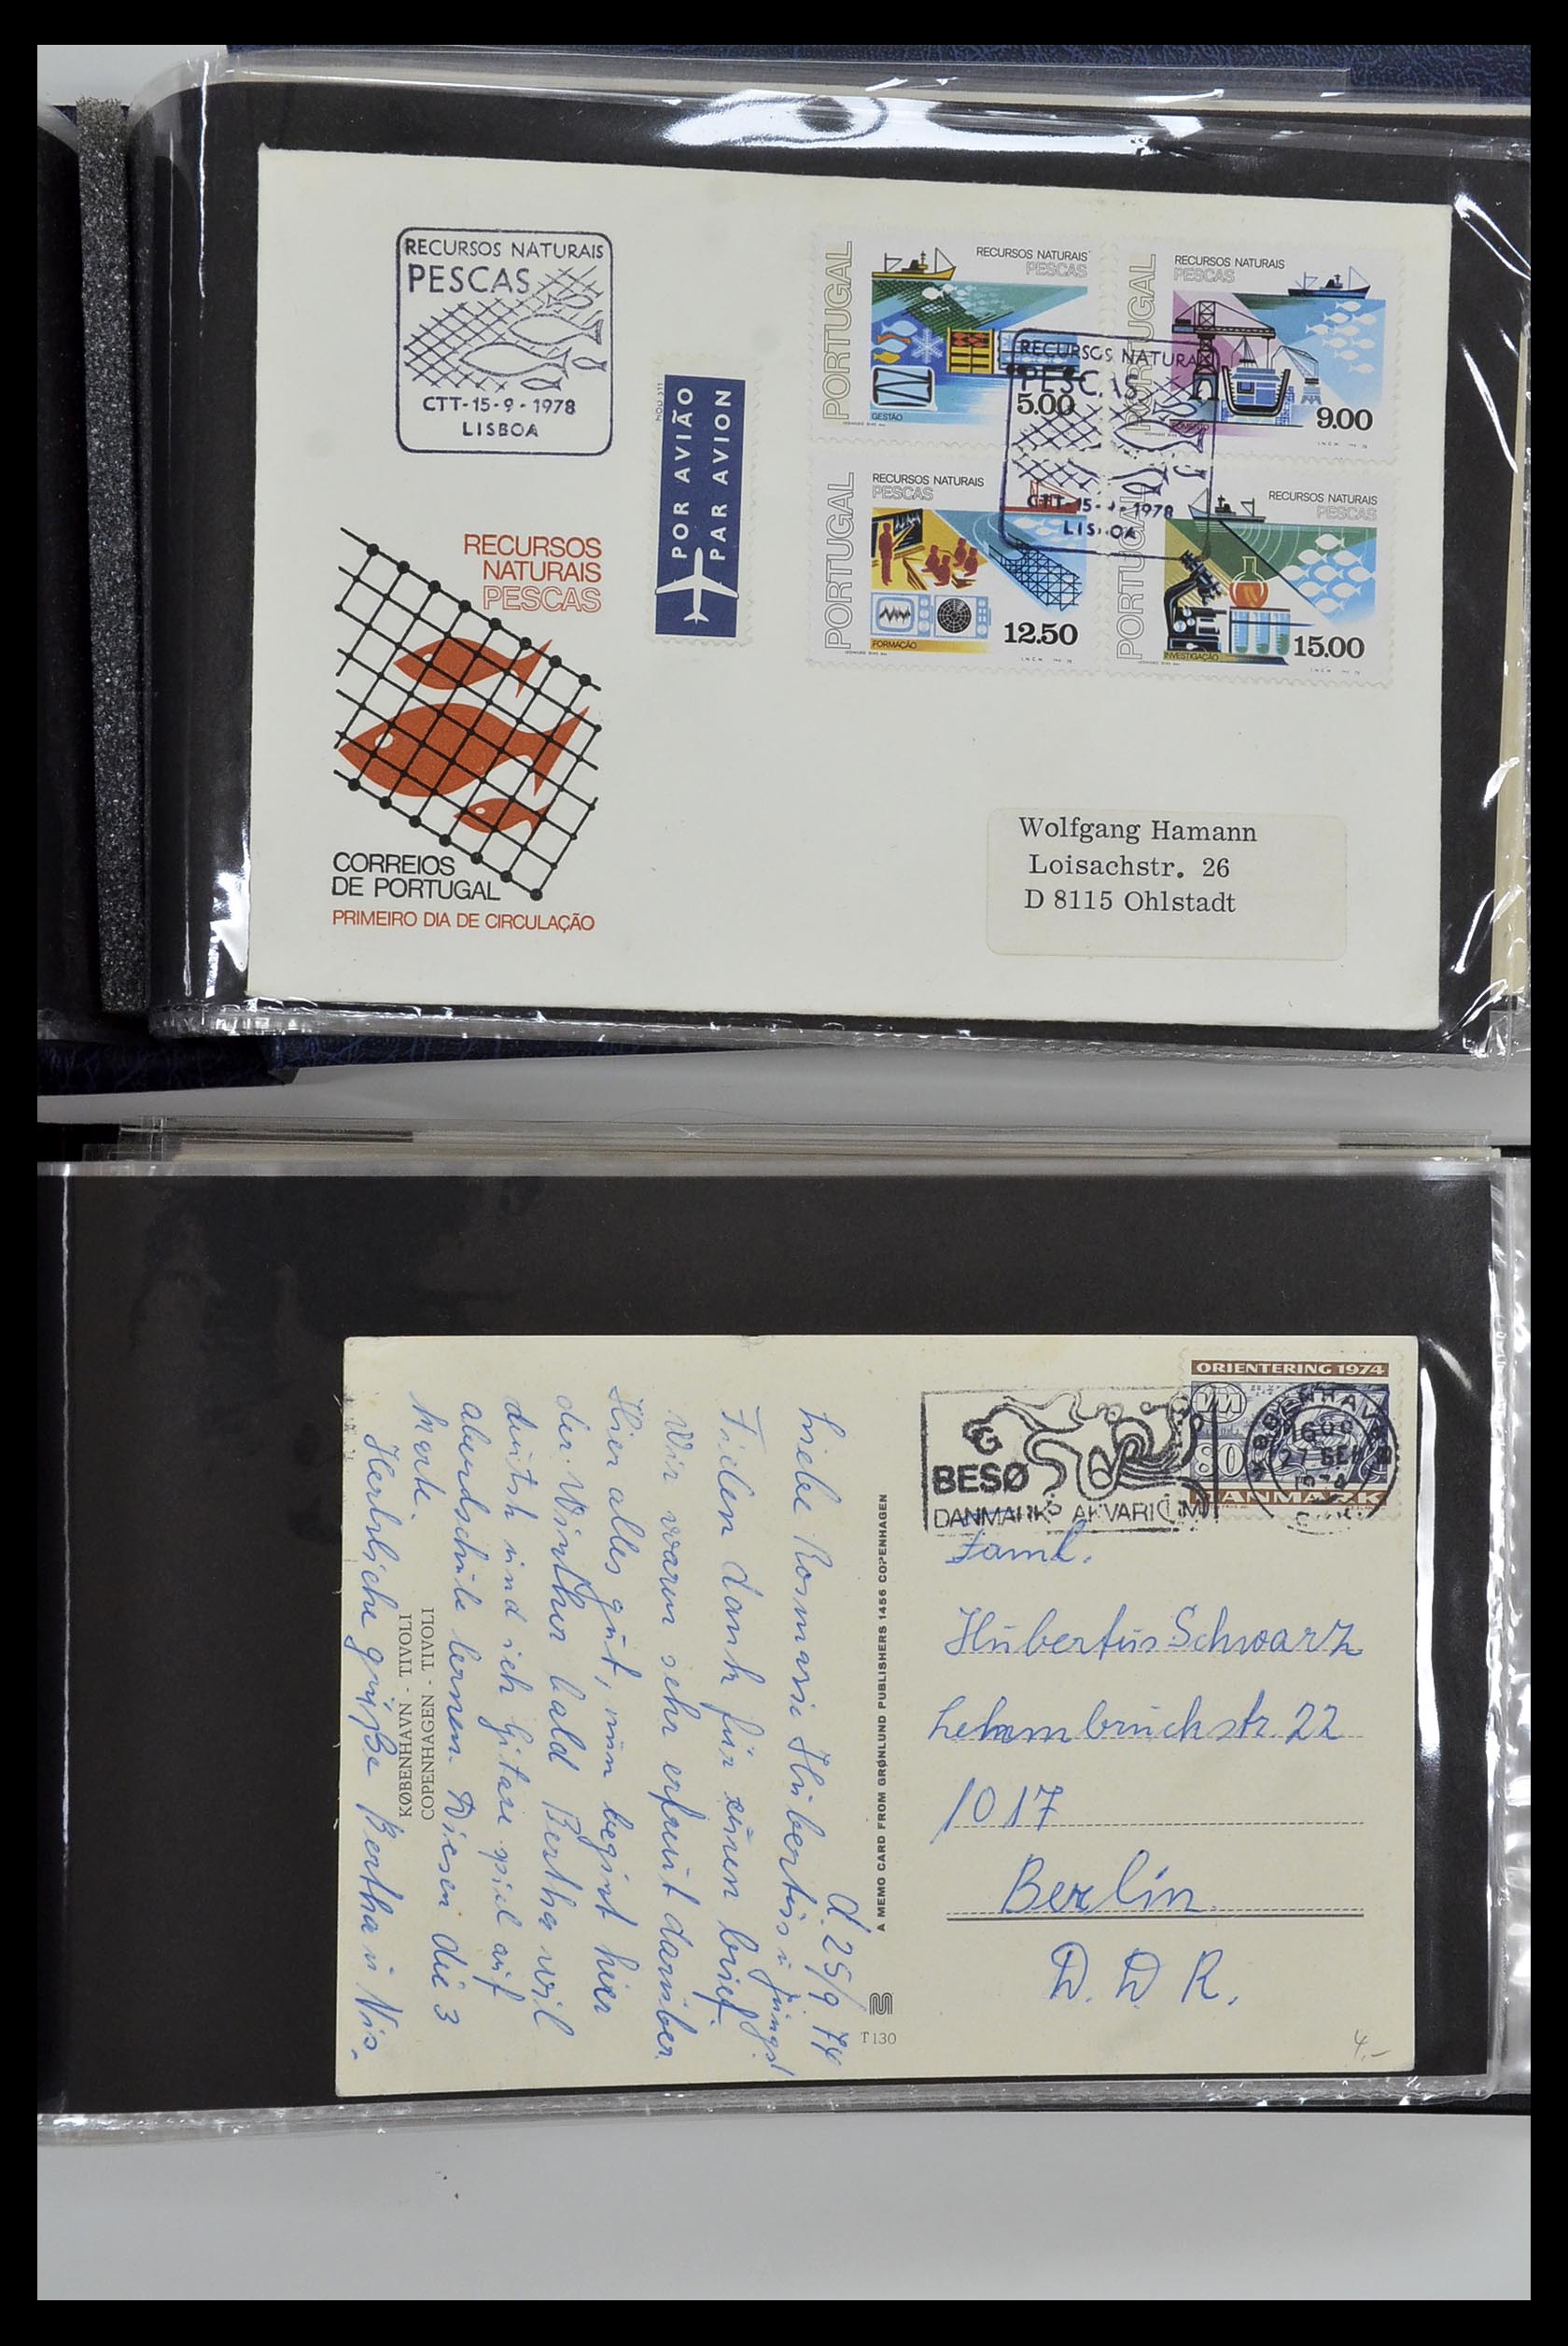 RECURSOS NATURAIS
PESCAS
CTT-15-9-1978
LISBOA
RECURSOS
NATURAIS
PESCAS
CORREIOS
DE PORTUGAL
PRIMEIRO DIA DE CIRCULAÇÃO
POR AVIÃO
PAR AVION
PORTUGAL
RECURSOS NATURAIS
PESCAS
5.00
GESTÃO
PORTUGAL
RECURSOS NATURAIS
PESCAS
9.00
RECURSOS NATURAI
PESCAS
CTT-15-9-1978
LISBOA
PORTUGAL
RECURSOS NATURAIS
PESCAS
12.50
FORMAÇÃO
PORTUGAL
RECURSOS NATURAIS
PESCAS
15.00
INVESTIGAÇÃO
Wolfgang Hamann
Loisachstr. 26
D 8115 Ohlstadt
ORIENTERING 1974
80
DANMARK
KØBENHAVN
SEP
1974
BESØG
DANMARKS AKVARIUM
d. 25/9. 74
Liebe Rosmarie Hübertus u Jungs!
Fielen dank für einen brief.
Wir waren sehr erfreut darüber.
Hier alles gut, nun begint hier
der Winther bald Bertha wil
deutsh und ich Gitare spiel auf
abendschule lernen. Diesen die 3
Marke.
Hertzliche grüße Bertha u Nis.
KØBENHAVN - TIVOLI
COPENHAGEN - TIVOLI
A MEMO CARD FROM GRØNLUND PUBLISHERS 1456 COPENHAGEN
T 130
Faml.
Hübertus Schwarz
Lehmbruckstr. 22
1017
Berlin
D. D. R.
4.-